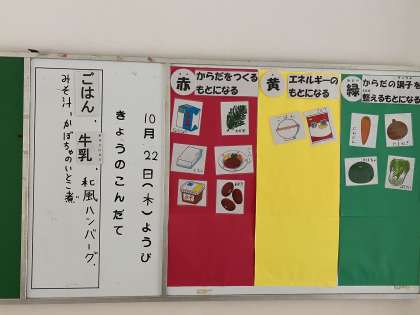 10月22日(木)ようび
きょうのこんだて
ごはん、牛乳、和風ハンバーグ、
みそ汁、かぼちゃのいとこ煮
赤 からだをつくる
もとになる
黄 エネルギーの
もとになる
緑 からだの調子を
整えるもとになる